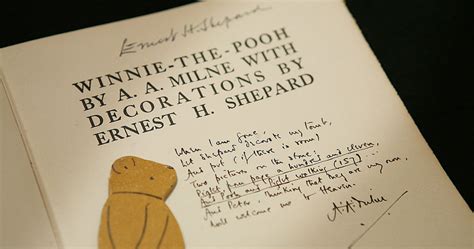 Ernest H. Shepard
WINNIE-THE-POOH
BY A. A. MILNE WITH
DECORATIONS BY
ERNEST H. SHEPARD
When I am gone,
Let Shepard decorate my tomb,
And put (if there is room)
Two pictures on the stone:
Piglet, from page a hundred and eleven,
And Pooh and Piglet walking (157) ...
And Peter, thinking that they are my own,
Will welcome me to Heaven.
A. A. Milne